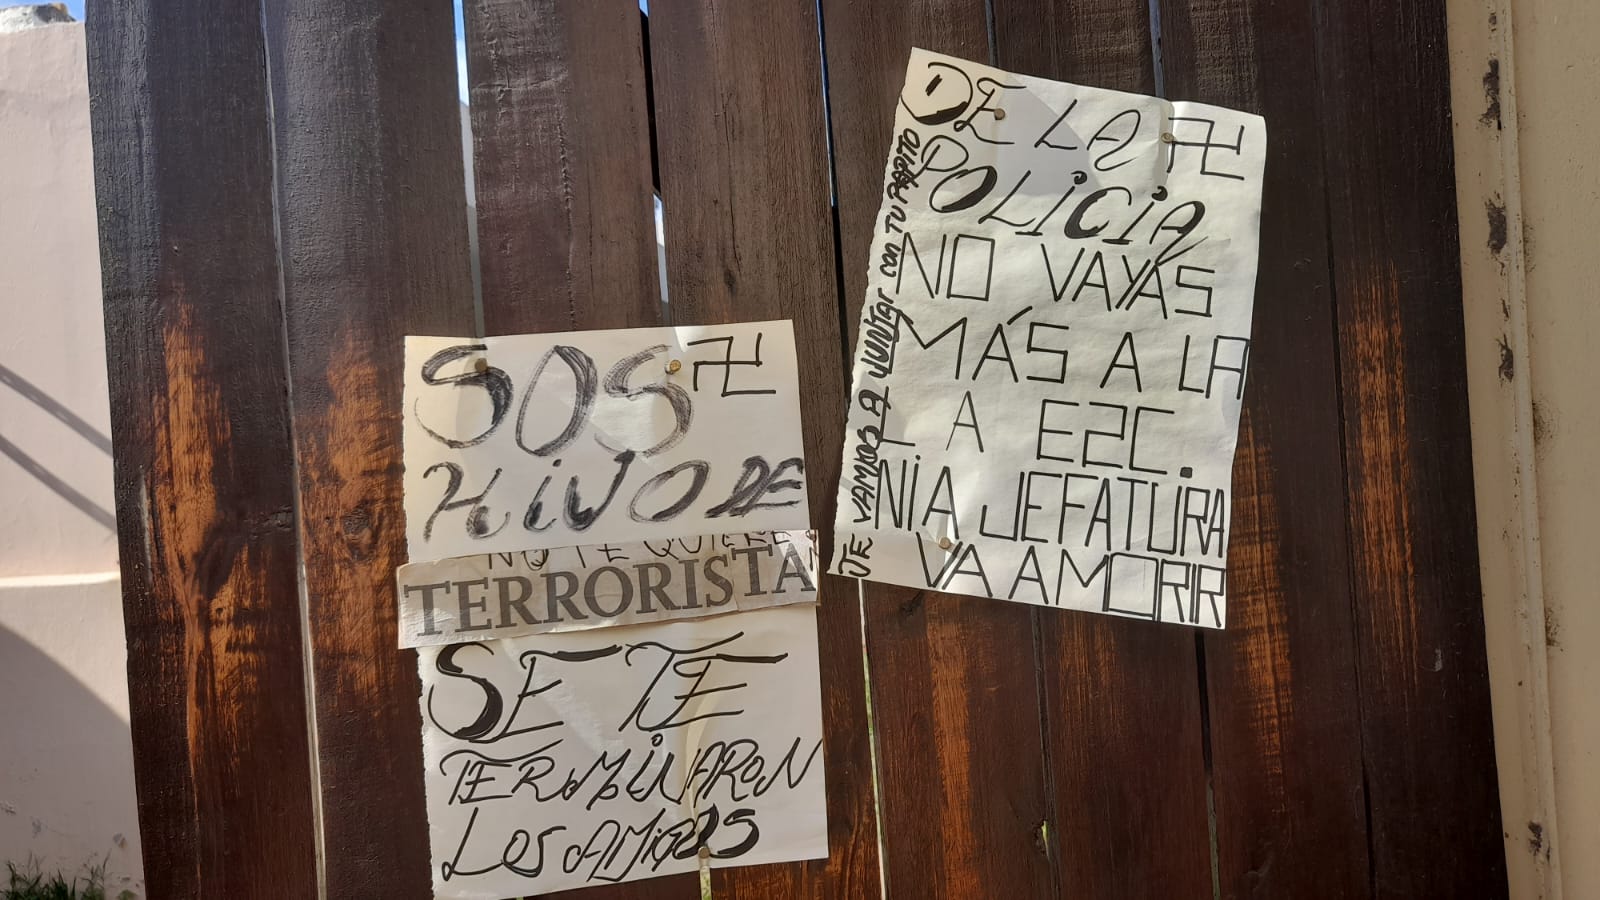 SOS 卍
HiJO DE
NO TE QUIERE
TERRORISTA
SE TE
TERMiNARON
LOS AMiGOS
DE LA 卍
POLiCiA
NO VAYAS
MÁS A LA
LA E2C.
NI A JEFATURA
VA A MORIR
JE VAMOS A JUNTAR CON TU PAPÁ